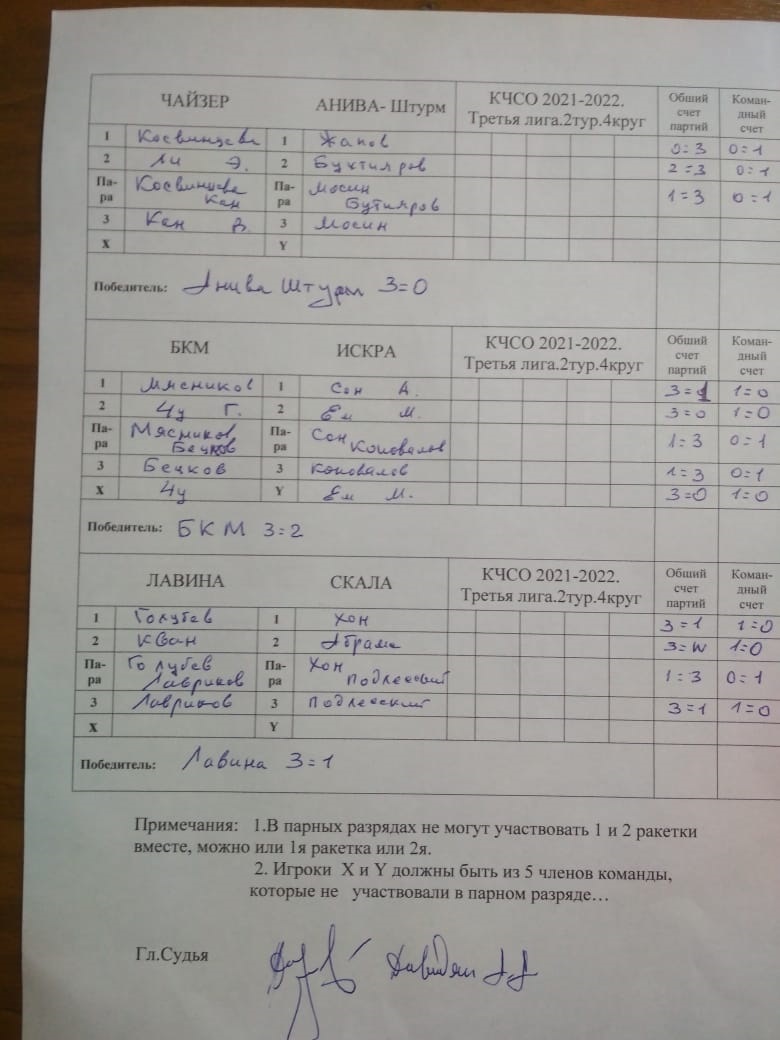 ЧАЙЗЕР АНИВА- Штурм КЧСО 2021-2022. Третья лига.2тур.4круг Общий счет партий Коман-дный счет
1 Косвинцева 1 Жапов 0=3 0=1
2 Ли Э. 2 Бухтияров 2=3 0=1
Па-ра Косвинцева Кан Па-ра Мосин Бутияров 1=3 0=1
3 Кан В. 3 Мосин
X Y
Победитель: Анива Штурм 3=0
БКМ ИСКРА КЧСО 2021-2022. Третья лига.2тур.4круг Общий счет партий Коман-дный счет
1 Мясников 1 Сон А. 3= 1=0
2 Чу Г. 2 Ем М. 3=0 1=0
Па-ра Мясников Бецков Па-ра Сон Коновалов 1=3 0=1
3 Бецков 3 Коновалов 1=3 0=1
X Чу Y Ем М. 3=0 1=0
Победитель: БКМ 3=2
ЛАВИНА СКАЛА КЧСО 2021-2022. Третья лига.2тур.4круг Общий счет партий Коман-дный счет
1 Голубев 1 Хон 3=1 1=0
2 Кван 2 3=W 1=0
Па-ра Голубев Лавриков Па-ра Хон Подлесский 1=3 0=1
3 Лавриков 3 Подлесский 3=1 1=0
X Y
Победитель: Лавина 3=1
Примечания: 1.В парных разрядах не могут участвовать 1 и 2 ракетки
вместе, можно или 1я ракетка или 2я.
2. Игроки X и Y должны быть из 5 членов команды,
которые не участвовали в парном разряде…
Гл.Судья